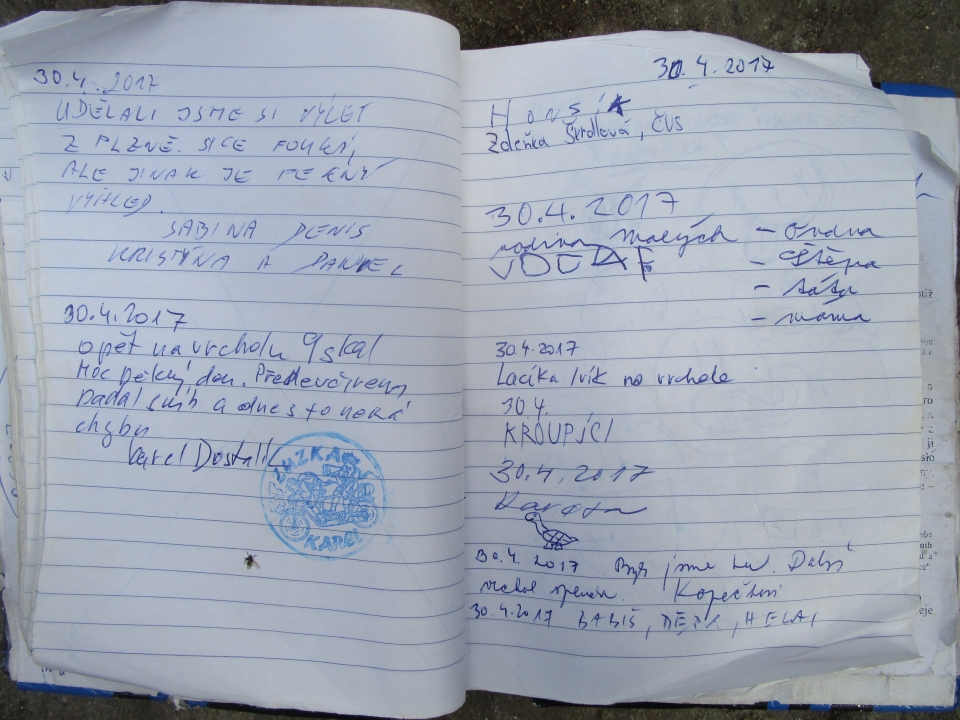 30.4.2017
UDĚLALI JSME SI VÝLET
Z PLZNĚ. SICE FOUKÁ,
ALE JINAK JE PĚKNÝ
VÝHLED.
SABINA DENIS
KRISTÝNA A
30.4.2017
opět na vrcholu
Moc pěkný den. Předevčírem
padal sníh a dnes to nemá
chybu
Karel Dostalík
ZUZKA
KAREL
30.4.2017
HONSÍK
Zdeňka Škrdlová, ČVS
30.4.2017
rodina Malých - Ondra
- Štěpa
- táta
- máma
30.4.2017
Lacika Ivík na vrchole
30.4.
KROUPÍCI
30.4.2017
30.4.2017 Byli jsme tu. Další
vrchol Kopečtí
30.4.2017 BABIŠ, DĚDA, HELA,